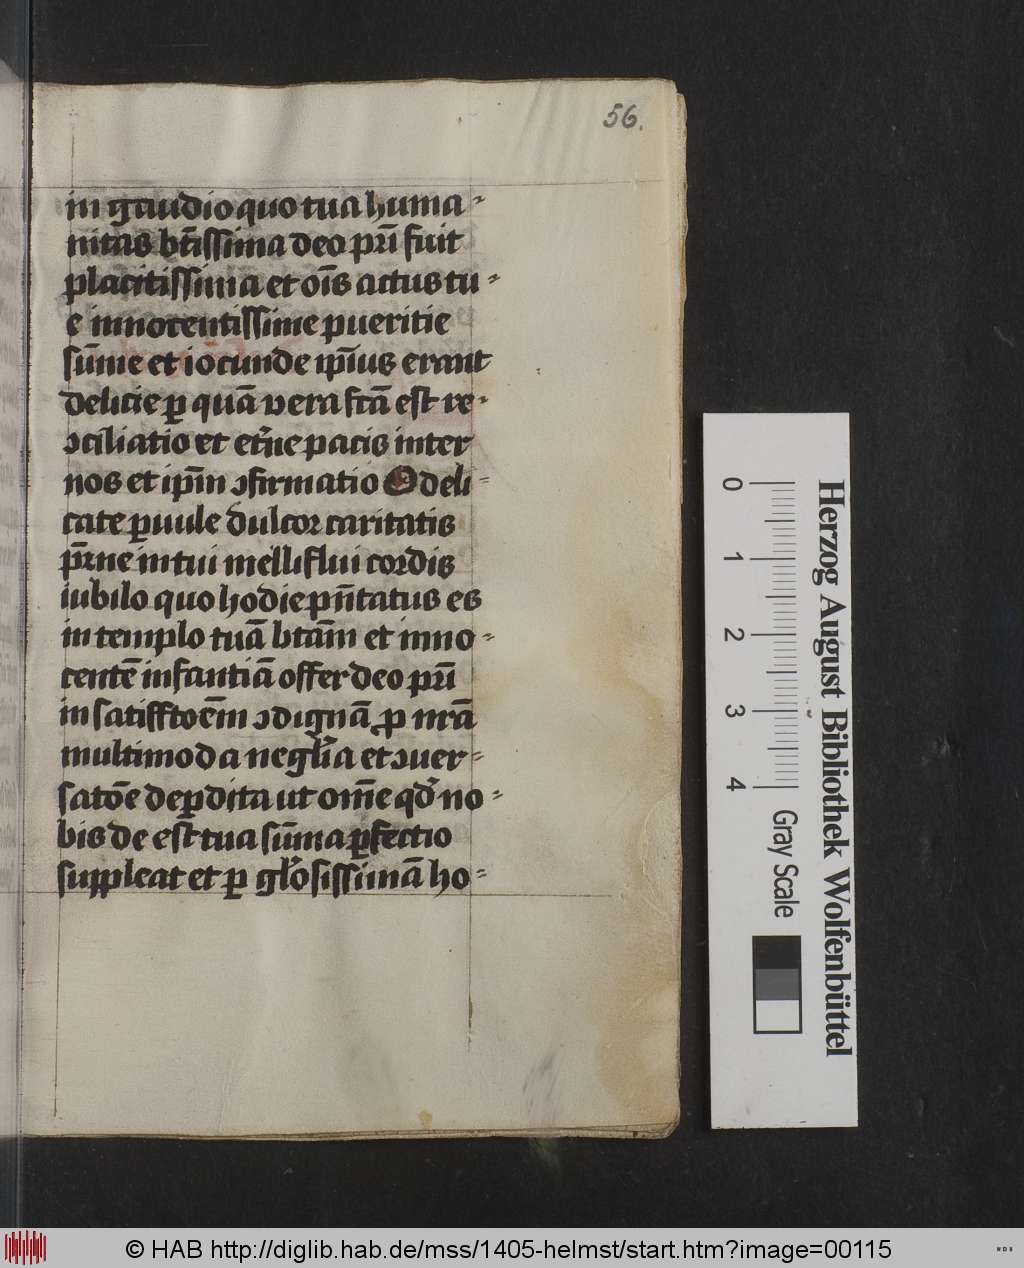 56.
in gaudio quo tua huma⸗
nitas bt̄issima deo pr̄i fuit
placitissima et oīs actus tu⸗
e innocentissime pueritie
sūme et iocunde ip̄ius erant
delicie ꝑ quā vera fc̄a est re⸗
ɔciliatio et et̄ne pacis inter
nos et ip̄m ɔfirmatio O deli⸗
cate ꝑuule dulcor caritatis
pr̄ne in tui melliflui cordis
iubilo quo hodie pn̄tatus es
in templo tuā btām et inno⸗
centē infantiā offer deo pr̄i
in satiffc̄toēm ɔdignā ꝓ nr̄a
multimoda negl̄ia et ɔuer⸗
satōe deꝑdita ut om̄e qd̄ no⸗
bis de est tua sūma ꝑfectio
suppleat et ꝑ gl̄osissimā ho⸗
0 1 2 3 4
Gray Scale
Herzog August Bibliothek Wolfenbüttel
© HAB http://diglib.hab.de/mss/1405-helmst/start.htm?image=00115